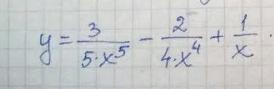 y = 3/(5·x⁵) − 2/(4·x⁴) + 1/x .